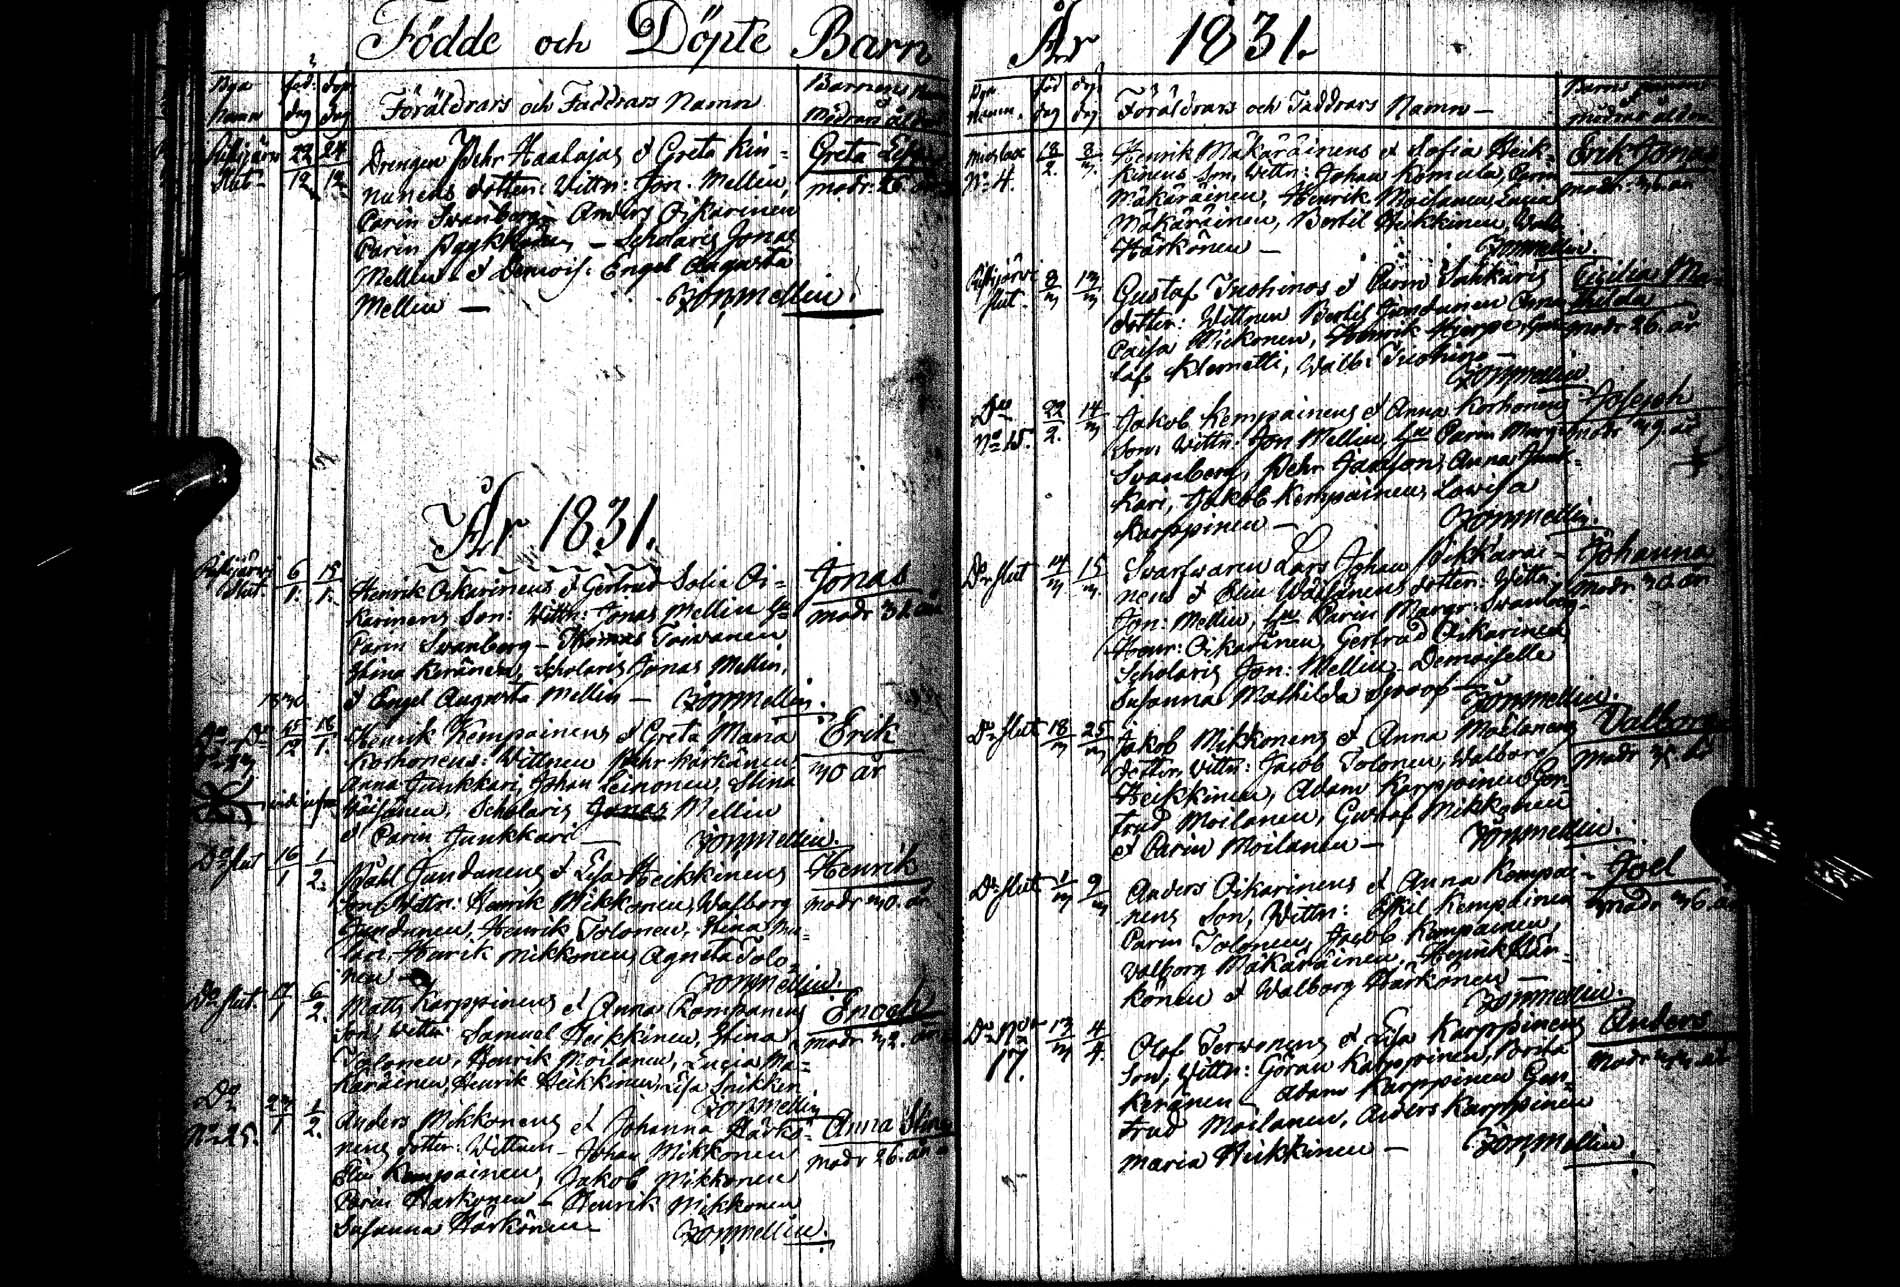 Födde och Döpte Barn
Bya
Namn
föd:
dag
döp
dag
Föräldrars och Faddrars Namn
Barnens
Modrens ålder
22/12 24/12
Drengen Pehr Haalajas & Greta Kin=
nunens dotter: Wittn: Jon: Mellin,
Carin Svanberg – Anders Oikarinen
Carin – Scholaris Jonas
Mellin & Demois: Engel Augusta
Mellin —
Jon Mellin.
Greta
modr: 26. år
År 1831.
Slut.
6/1. 15/1.
Henrik Oikarinens & Gertrud Sofie Oi=
karinens Son: Wittn: Jonas Mellin
Carin Svanberg – Thomas Toivanen
Stina Keränen, Scholaris Jonas Mellin,
& Engel Augusta Mellin — Jon Mellin.
Jonas
modr 31. år
1830
15/12 16/1.
Henrik Kempainens & Greta Maria
Korhonens: Wittnen Pehr Kärkäinen
Anna Junkkari, Johan Leinonen, Stina
Väisänen, Scholaris Jonas Mellin
& Carin Junkkari — Jon Mellin.
Erik
30 år
Do Slut 16/1 1/2.
Påhl Jundunens & Lisa Heikkinens
Son, Wittn: Henrik Mikkonen, Walborg
Jundunen, Henrik Tolonen, Stina Mu=
lari, Henrik Mikkonen, Agneta Tolo=
nen —
Jon Mellin.
Henrik
modr 30. år
Do Slut. 6/2.
Matts Karppinens & Anna Kompanens
Son, Wittn: Samuel Heikkinen, Stina
Tolonen, Henrik Moilanen, Lucia Mä=
käräinen, Henrik Heikkinen, Lisa
Jon Mellin
Enoch
modr 32. år
Do
No 25. 23/1 1/2.
Anders Mikkonens & Johanna Härkö=
nens dotter: Wittnen – Johan Mikkonen
Elin Kempainen, Jakob Mikkonen
Carin Härkönen – Henrik Mikkonen
Susanna Härkönen — Jon Mellin.
Anna Stina
modr 26. år
År 1831.
Bya
Namn.
föd
dag
döp
dag
Föräldrars och Faddrars Namn —
Barns
modrar ålder.
No 4.
18/2. 8/3.
Henrik Mäkäräinens & Sofia Heik=
kinens Son, Wittn: Johan Komula, Carin
Mäkäräinen, Henrik Moilanen, Lucia
Mäkäräinen, Bertil Heikkinen, Walb:
Härkönen —
Jon Mellin.
Erik Jonas
modr: 36. år
Slut. 8/3 13/3
Gustaf Tuohinos & Carin Sahkaris
dotter: Wittnen Bertil Jundunen Anna
Caisa Mickonen, Henrik Hjerpe, Gus=
taf Klemetti, Walb: Tuohino —
Jon Mellin
Cecilia Ma=
thilda
modr 26. år
Do
No 15. 22/2. 14/3
Jakob Kempainens & Anna Korhonens
Son, Wittn: Jon Mellin, Carin Margr:
Svanberg, Pehr Anna Junk=
kari, Jakob Kempainen, Lovisa
Karppinen —
Jon Mellin.
Joseph
modr 39. år
Do Slut 14/3 15/3.
Svarfvaren Lars Johan Pikkarai=
nens & Elin Väisänens dotter: Wittn:
Jon: Mellin, Carin Margr: Svanberg
Henr: Oikarinen, Gertrud Oikarinen
Scholaris Jon: Mellin – Demoiselle
Susanna Mathilda Snoof — Jon Mellin.
Johanna
modr 30. år
Do Slut 18/3 25/3
Jakob Mikkonens & Anna Moilanens
dotter, Wittn: Jacob Tolonen, Walborg
Heikkinen, Adam Karppinen, Ger=
trud Moilanen, Gustaf Mikkonen
& Carin Moilanen — Jon Mellin.
Valborg
modr
Do Slut 1/3 9/3
Anders Oikarinens & Anna Kempai=
nens Son, Wittn: Eskil Kempainen
Carin Tolonen, Jacob Kempainen,
Valborg Mäkäräinen, Henrik Här=
könen & Walborg Härkönen —
Jon Mellin.
Joel
modr 36. år
Do No
17. 13/3 4/4.
Olof Terwonens & Lisa Karppinens
Son, Wittn: Göran Karppinen, Brita
Keränen – Adam Karppinen Ger=
trud Moilanen, Anders Karppinen
Maria Heikkinen — Jon Mellin.
Anders
modr 33 år